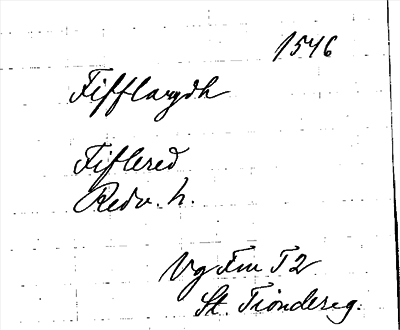 1546
Fifflarydh
Fiflered
Redv. h.
Vg Fm T2
St. Tiondereg.